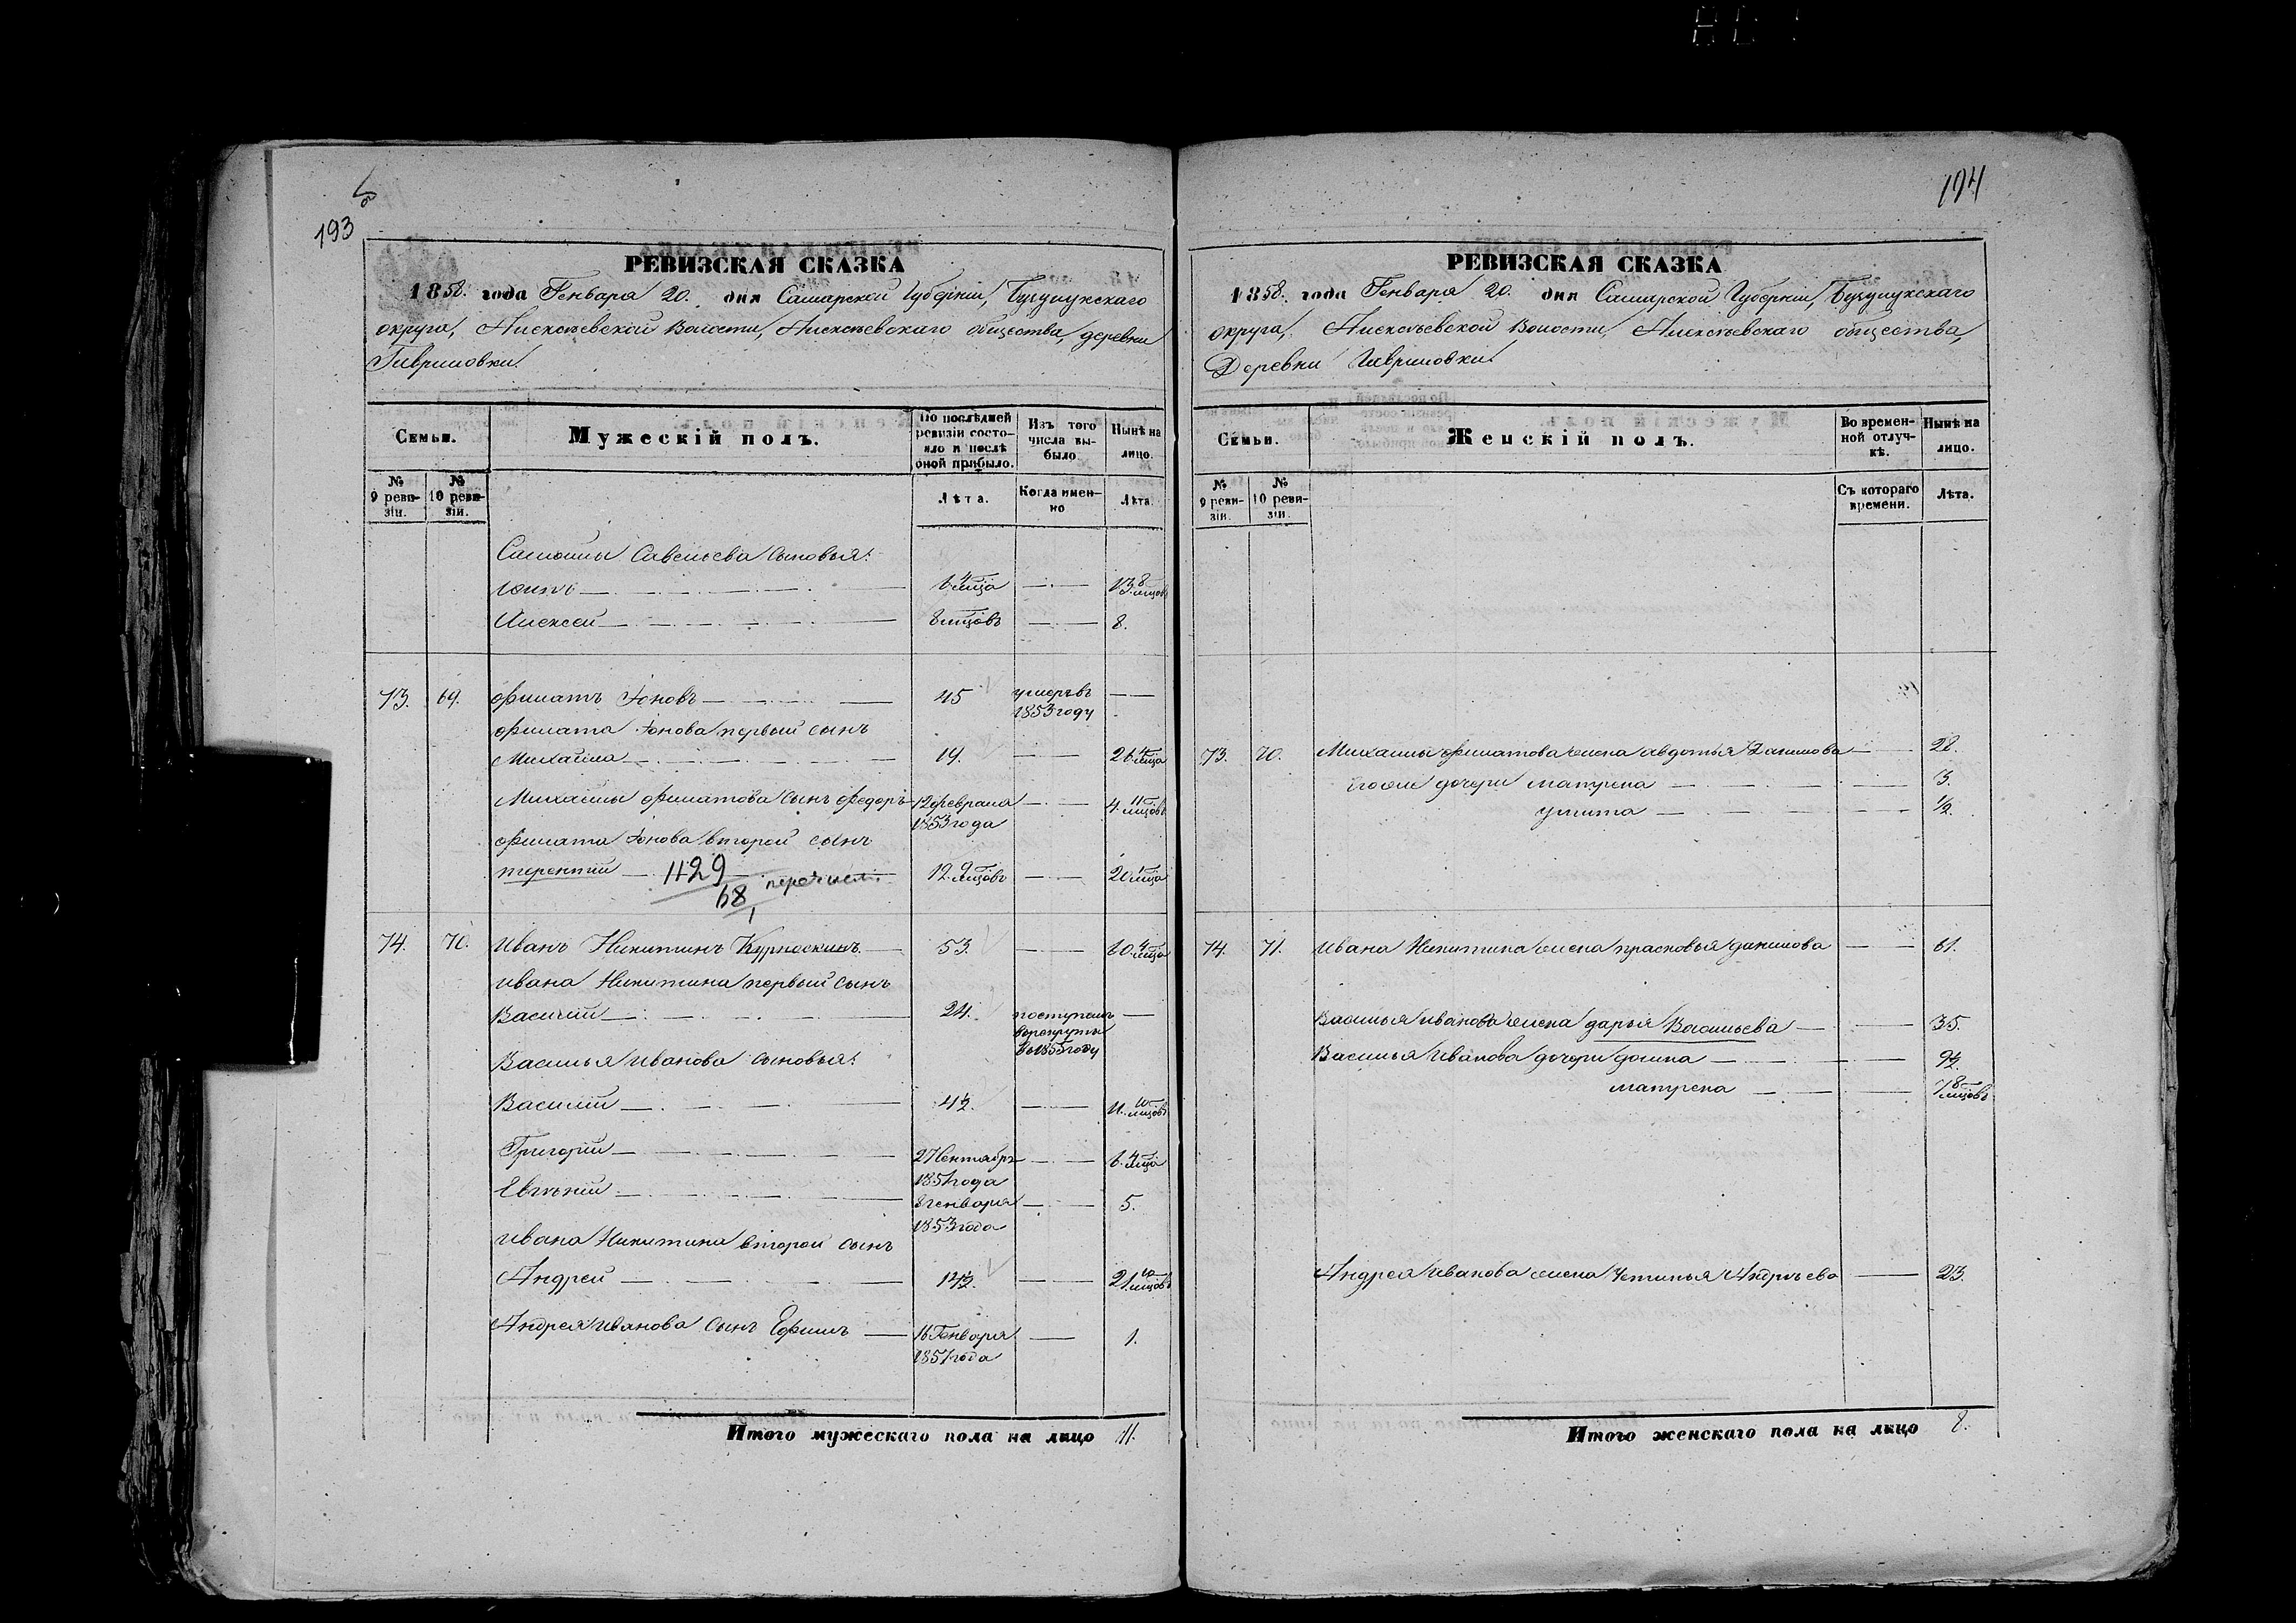 193
194
РЕВИЗСКАЯ СКАЗКА
1858. года Генваря 20. дня Самарской Губерніи, Бузулукскаго
округа, Алексѣевской Волости, Алексѣевскаго общества, деревни
Гавриловки.
Семьи.
Мужескій полъ.
По послѣдней ревизіи состояло и послѣ оной прибыло.
Изъ того числа выбыло.
Нынѣ на лицо.
№ 9 ревизіи.
№ 10 ревизіи.
Лѣта.
Когда именно
Лѣта.
Савельева сыновья:
6. 4 мца 13. 8 мцовъ
Алексей 8 мцовъ 8.
73. 69. Филатъ Іоновъ 45 умеръ въ 1853 году
Филата Іонова первый сынъ
Михайла 19. 26. 4 мца
Михайлы Филатова сынъ Федоръ 12 февраля 1853 года 4. 11 мцовъ
Филата Іонова второй сынъ
Терентий 12. 9 мцовъ 20. мца
1129
68 перечисл.
74. 70. Иванъ Никитинъ Курносkинъ 53. 60. 4 мца
Ивана Никитина первый сынъ
Василий 24. поступилъ в рекруты в 1855 году
Василья Иванова сыновья:
Василий 4½. 11. 10 мцовъ
Григорій 27 Сентября 1851 года 6. 4 мца
Евгѣній 8 генваря 1853 года 5.
Ивана Никитина второй сынъ
Андрей 14½. 21. 10 мцовъ
Андрея Иванова сынъ Ефимъ 16 Генваря 1857 года 1.
Итого мужескаго пола на лицо 11.
РЕВИЗСКАЯ СКАЗКА
1858. года Генваря 20. дня Самарской Губерніи, Бузулукскаго
округа, Алексѣевской Волости, Алексѣевскаго общества,
Деревни Гавриловки.
Семьи.
Женскій полъ.
Во временной отлучкѣ.
Нынѣ на лицо.
№ 9 ревизіи.
№ 10 ревизіи.
Съ котораго времени.
Лѣта.
73. 70. Михайлы Филатова жена Авдотья Данилова 28.
его же дочери Матрена 3.
Улита ½.
74. 71. Ивана Никитина жена Прасковья Данилова 61.
Василья Иванова жена Дарья Васильева 35.
Василья Иванова дочери Домна 9½.
Матрена 7. 8 мцовъ
Андрея Иванова жена Устинья Андрѣева 23.
Итого женскаго пола на лицо 8.